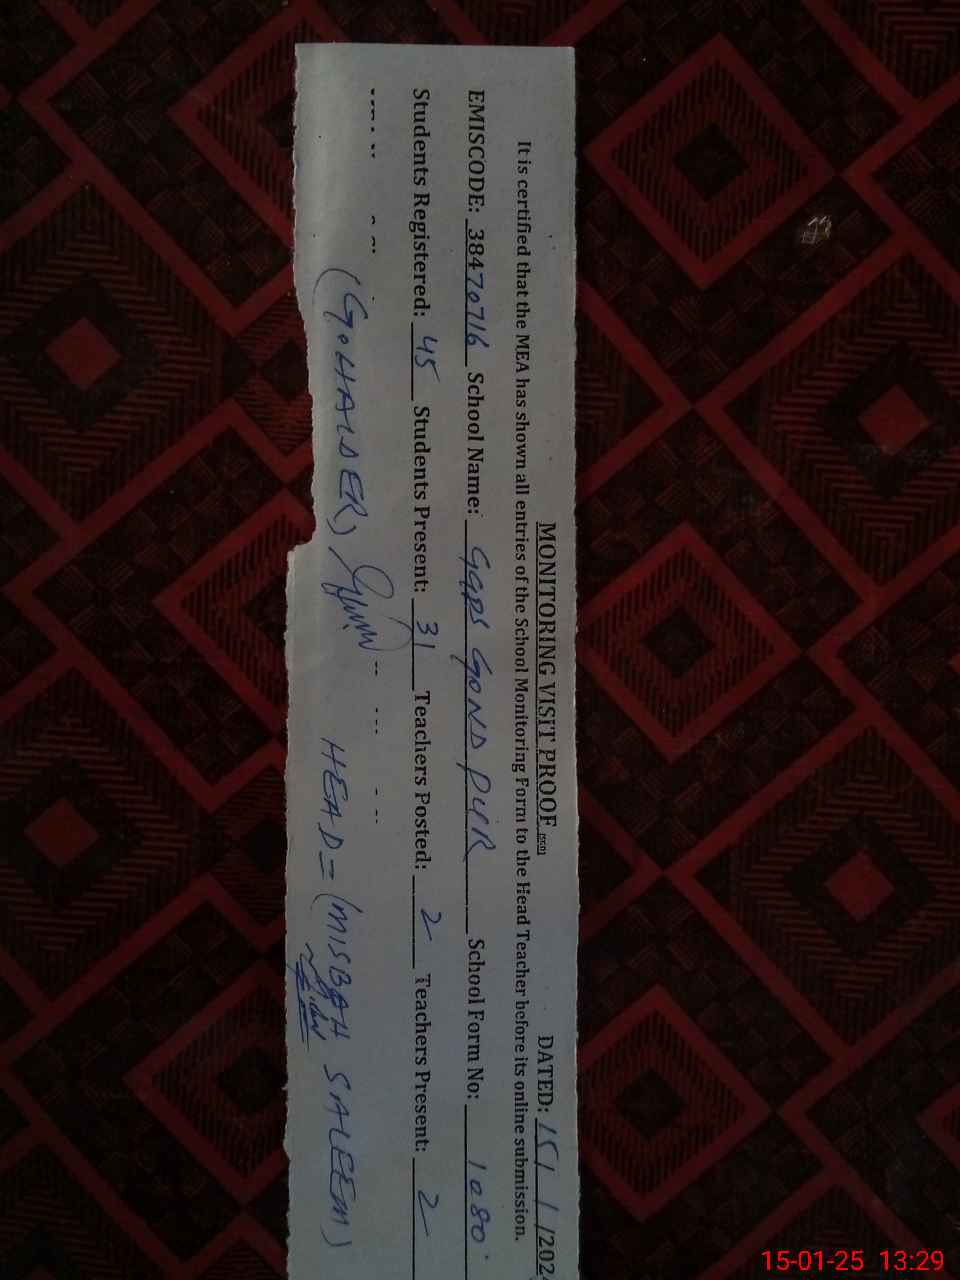 MONITORING VISIT PROOF DATED: 15/1/202
It is certified that the MEA has shown all entries of the School Monitoring Form to the Head Teacher before its online submission.
EMISCODE: 38470716 School Name: GGPS GONDPUR School Form No: 1080
Students Registered: 45 Students Present: 31 Teachers Posted: 2 Teachers Present: 2
(GOHALDER) HEAD = (MISBAH SALEEM)
15-01-25 13:29